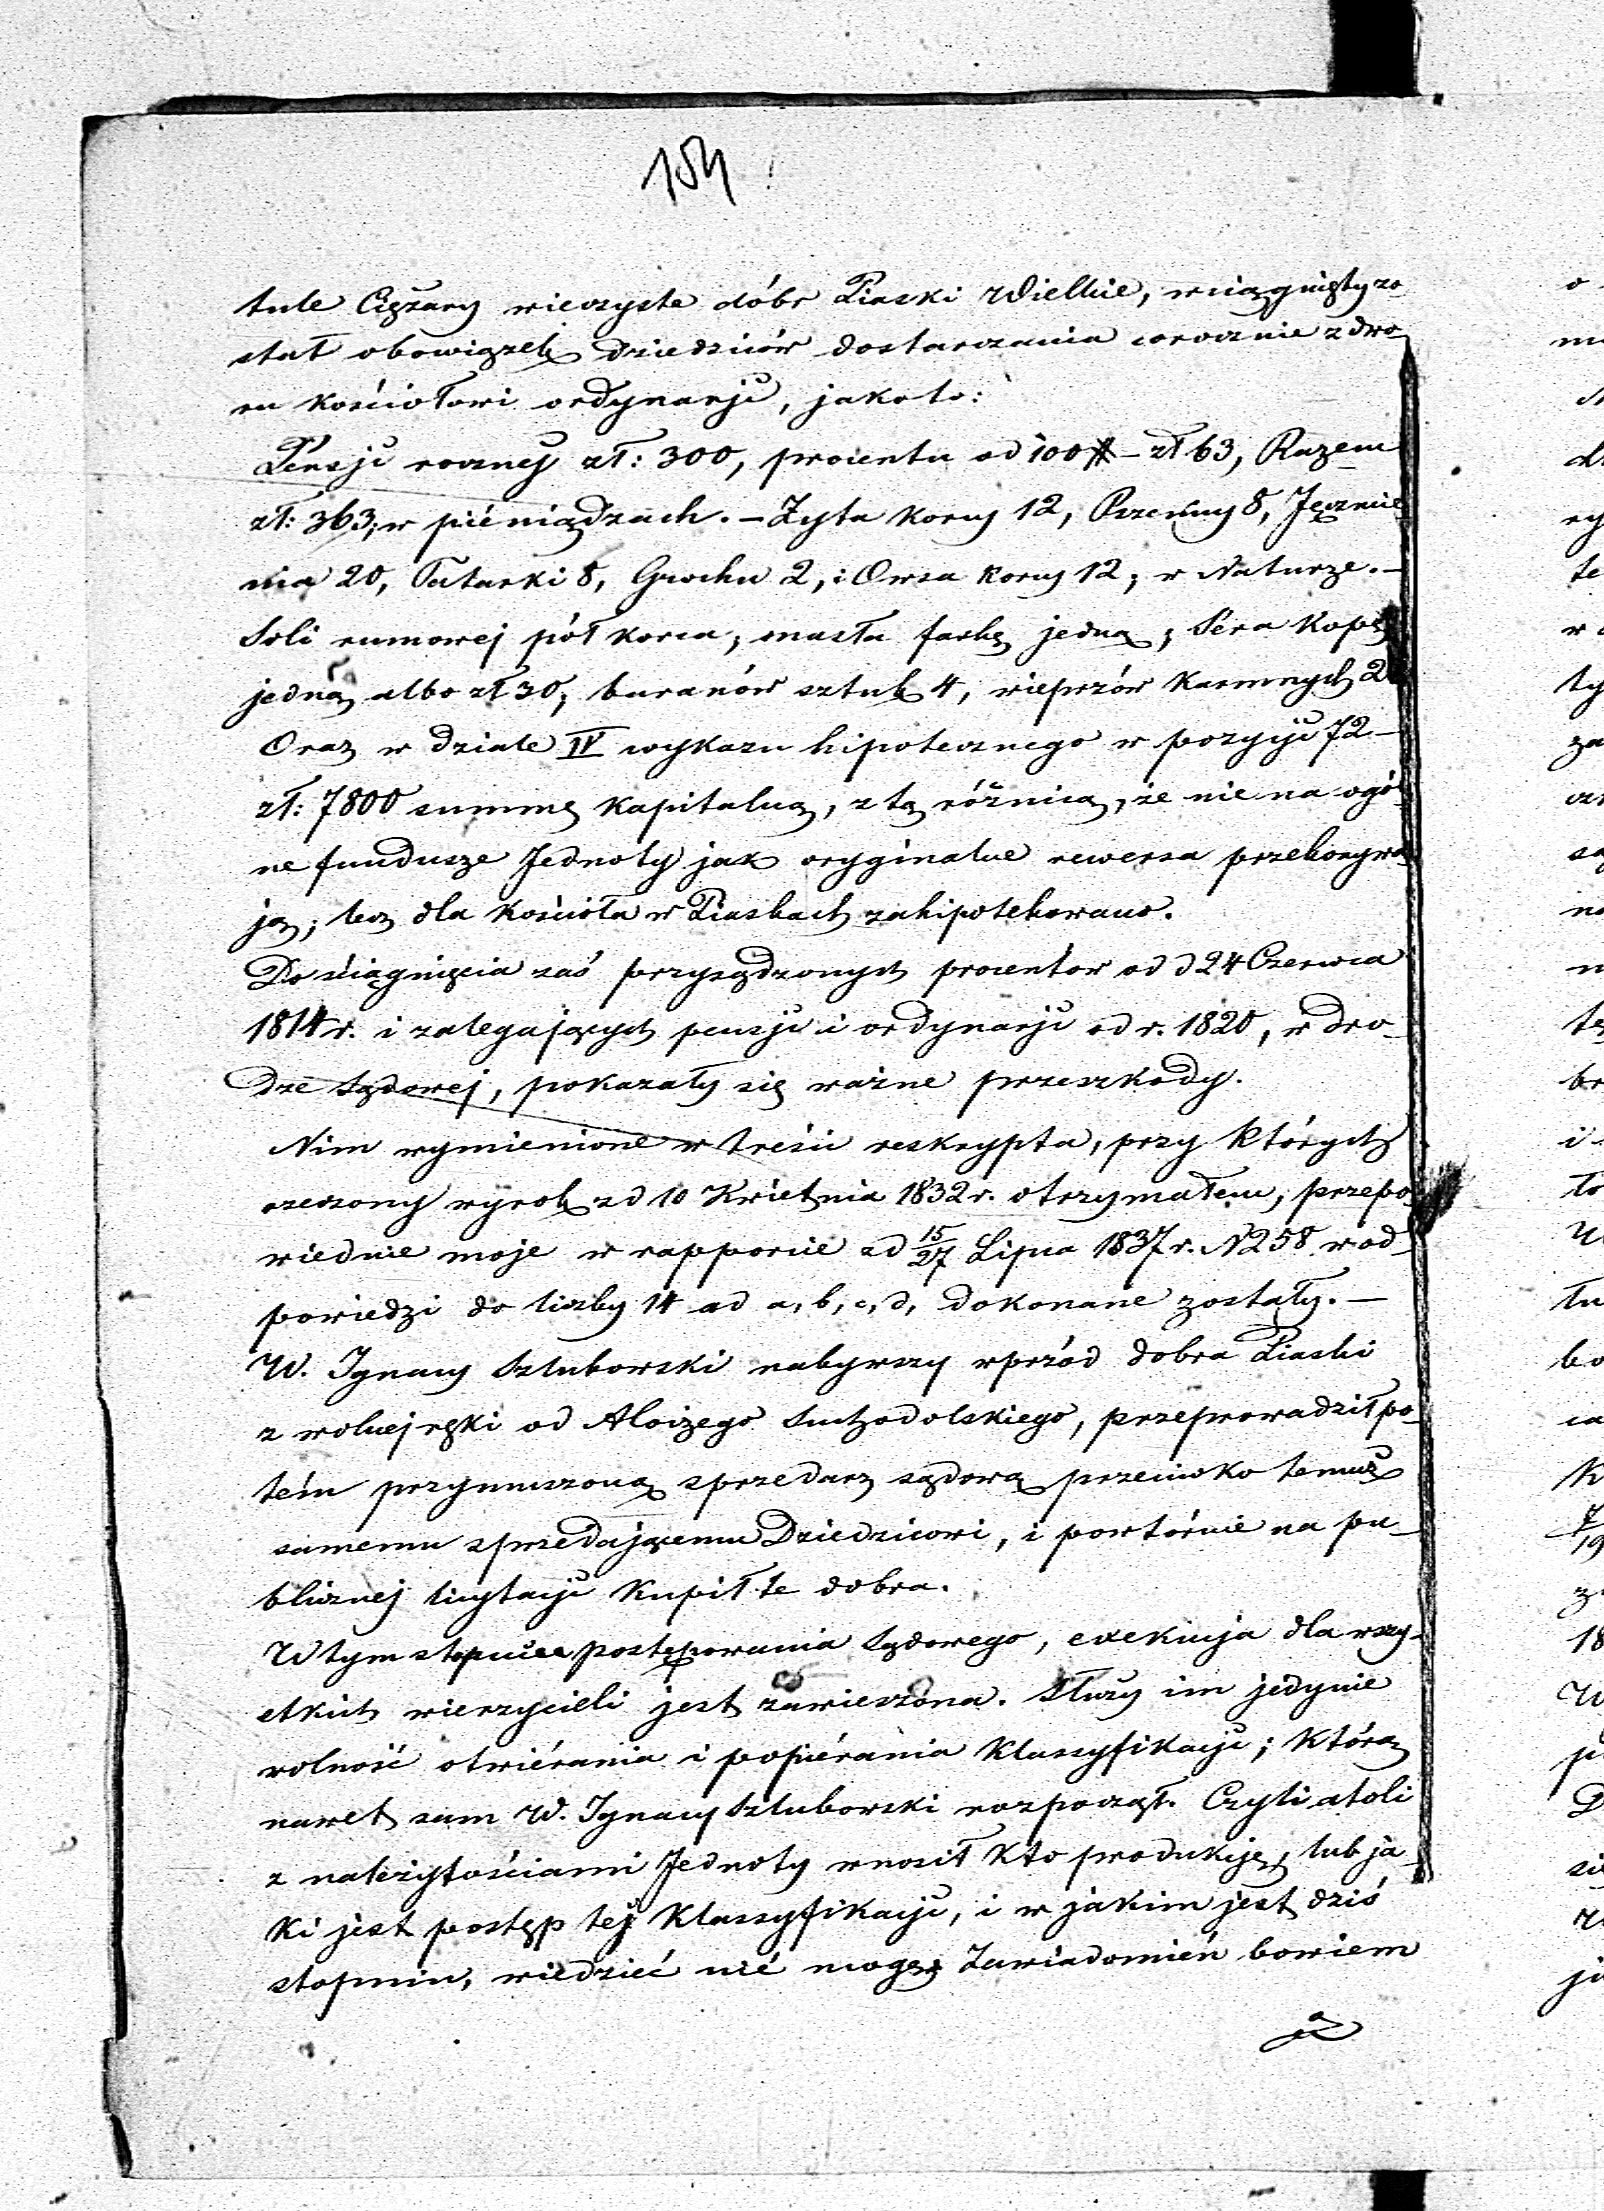 154
tule Ciężary wieczyste dóbr Piaski Wielkie, wciągnięty zo-
stał obowiązek dziedziców dostarczania corocznie z dwo-
ru kościołowi ordynarji, jakoto:
Pensji rocznej zł: 300, procentu od 100 # – zł 63, Razem
zł: 363, w pieniądzach. – Żyta korcy 12, Pszenicy 8, Jęczmie-
nia 20, Tatarki 8, Grochu 2, i Owsa korcy 12, w Naturze. –
Soli rumowej pół korca, masła faskę jedną, Séra kopę
jedną albo zł 30, baranów sztuk 4, wieprzów karmnych 2
Oraz w dziale IV wykazu hipotecznego w pozycji 72 –
zł: 7800 summę kapitalną, z tą różnicą, że nie na ogól-
ne fundusze Jednoty jak oryginalne rewersa przekonywa-
ją; lecz dla kościoła w Piaskach zahipotekowano.
Do ściągnięcia zaś przysądzonych procentów od d 24 Czerwca
1814 r. i zalegających pensji i ordynarji od r. 1820, w dro-
dze Sądowej, pokazały się ważne przeszkody.
Nim wymienione w treści reskrypta, przy których
rzeczony wyrok z d 10 Kwietnia 1832 r. otrzymałem, przepo-
wiednie moje w rapporcie z d 15/27 Lipca 1837 r. N 258 w od-
powiedzi do liczby 14 ad a, b, c, d, dokonane zostały. –
W. Ignacy Szluborski nabywszy wprzód dobra Piaski
z wolnej ręki od Aloizego Suchodolskiego, przeprowadził po-
tém przymuszoną sprzedarz sądową przeciwko temuż
samemu sprzedającemu Dziedzicowi, i powtórnie na pu-
blicznej licytacji kupił te dobra.
W tym stopniu postępowania Sądowego, exekucja dla wszy-
stkich wierzycieli jest zawieszona. Służy im jedynie
wolność otwiérania i popiérania Klassyfikacji; którą
nawet sam W. Ignacy Szluborski rozpoczął. Czyli atoli
z należytościami Jednoty wnosił kto produkcję, lub ja-
ki jest postęp tej Klassyfikacji, i w jakim jest dziś
stopniu, wiedzieć nié mogę. Zawiadomień bowiem